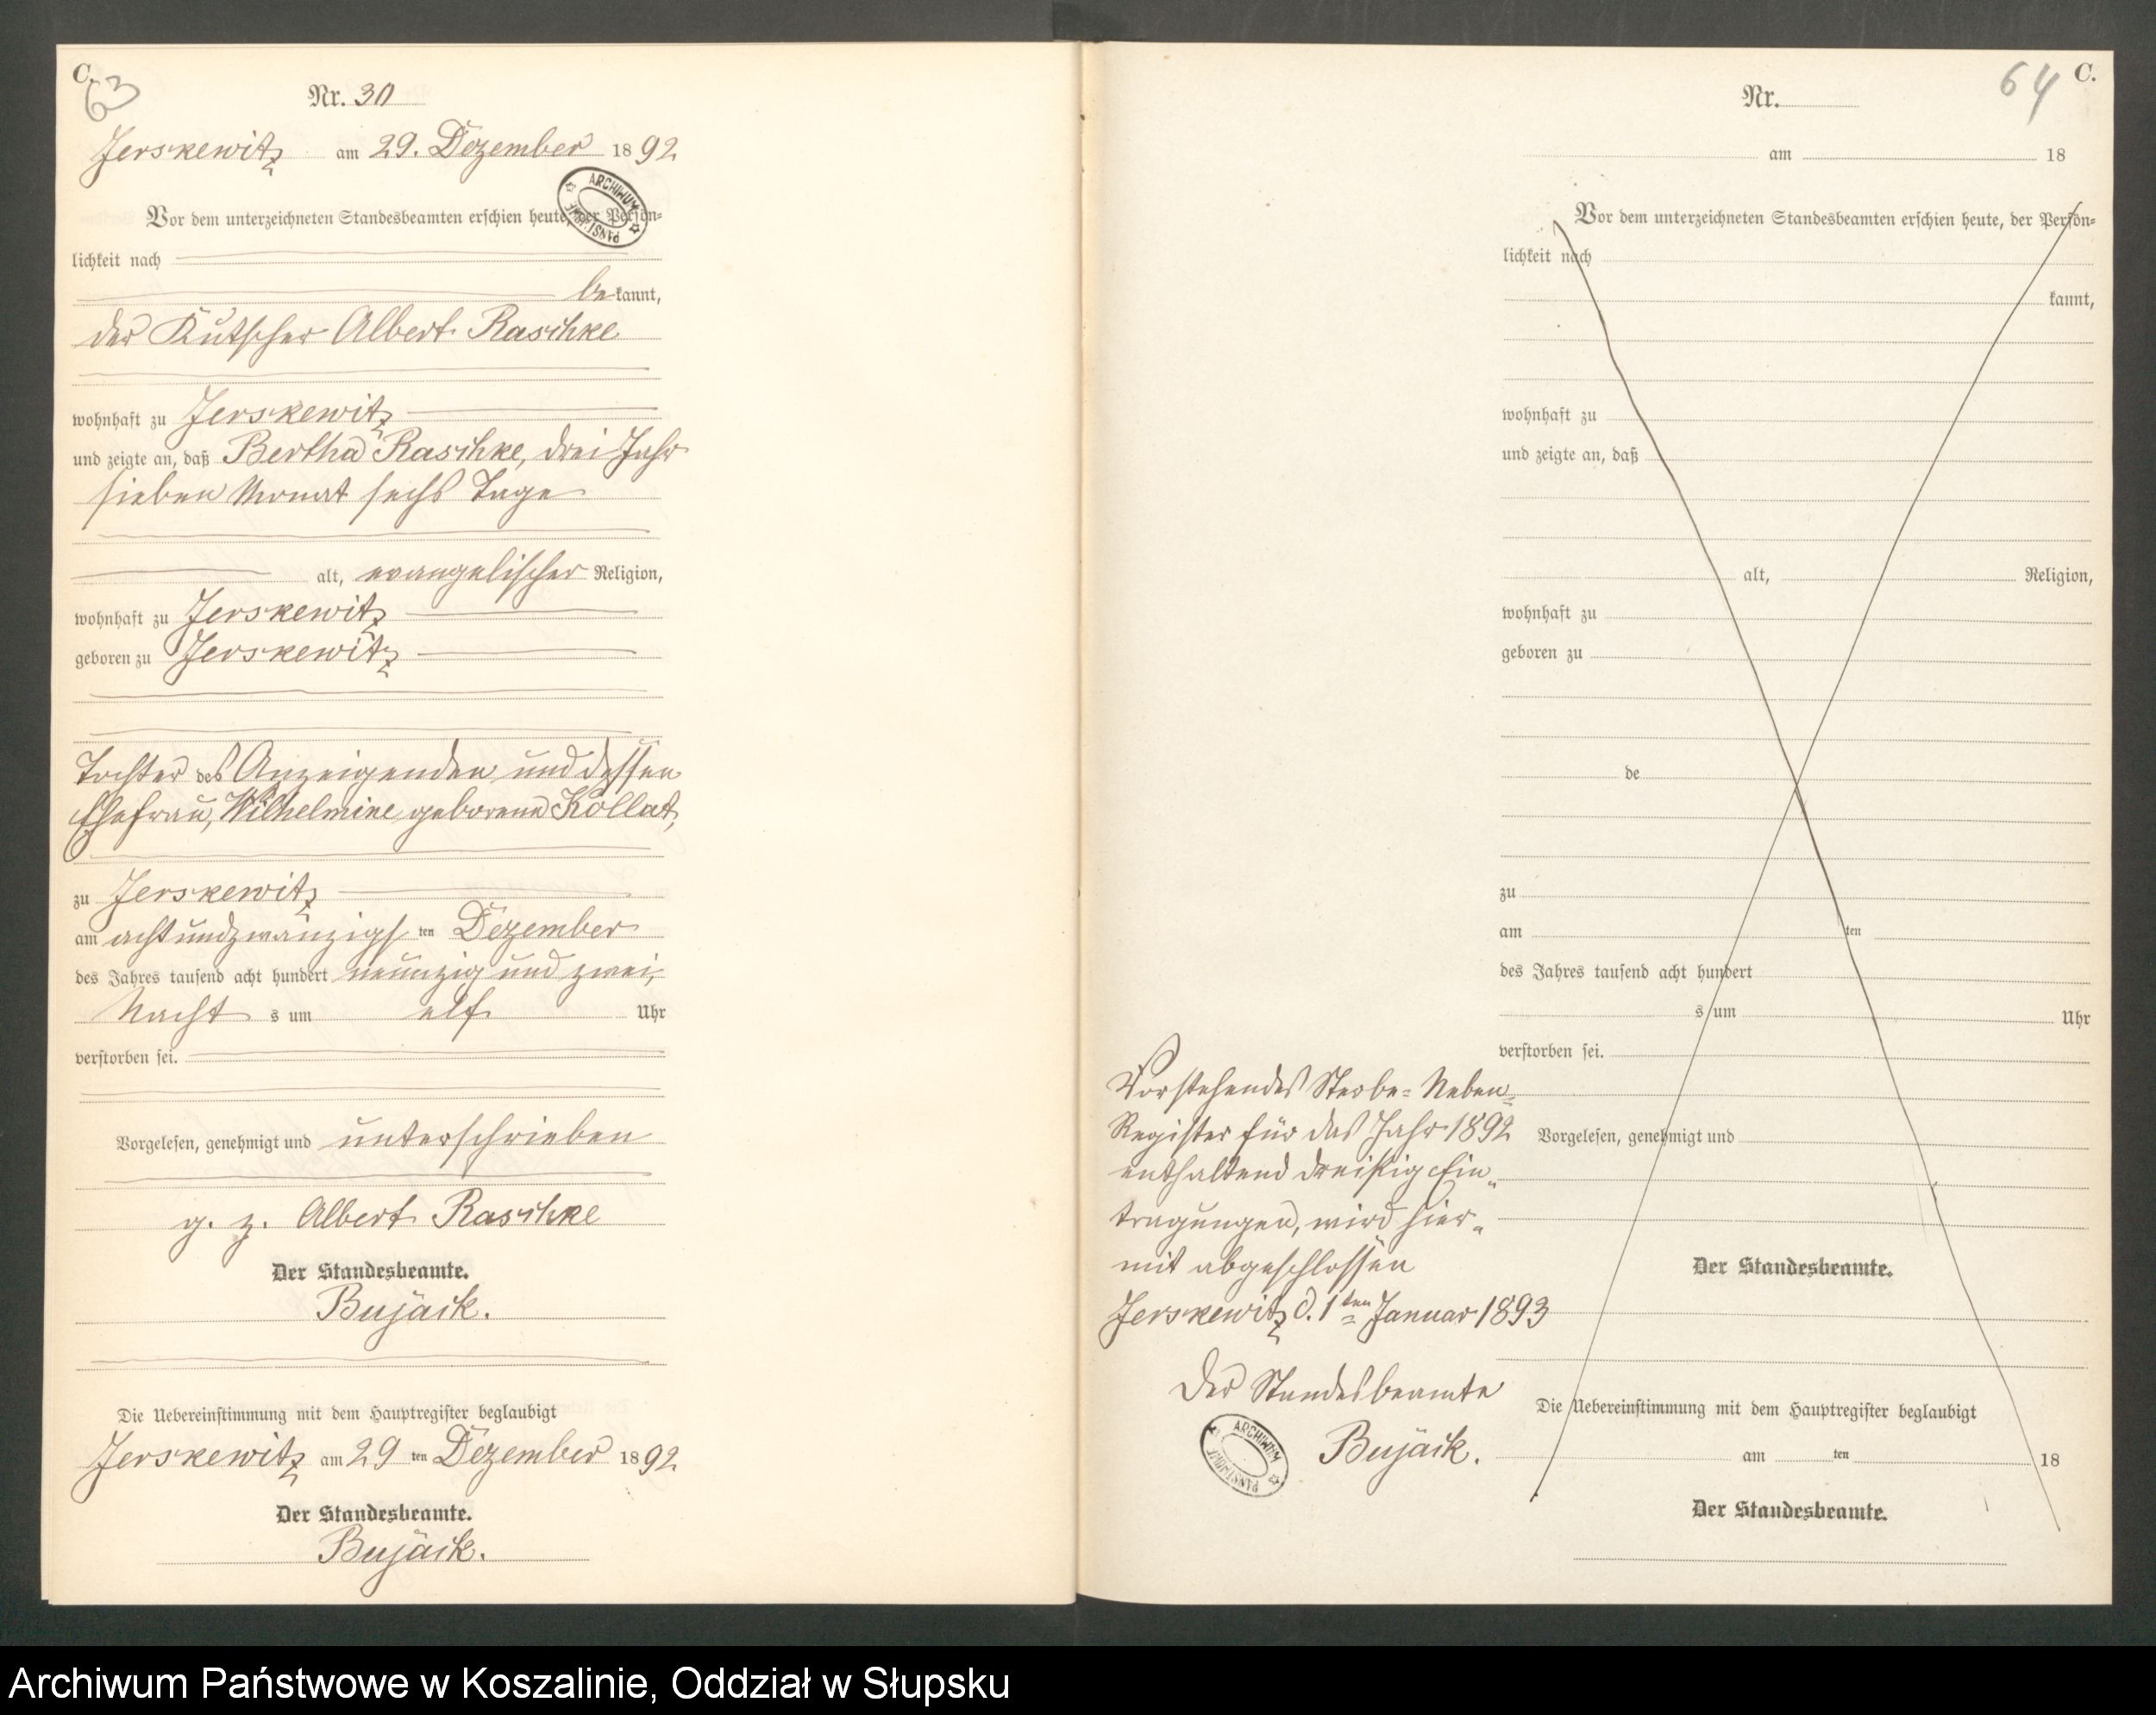 C.
63
Nr. 30
Jerskewitz am 29. Dezember 1892
ARCHIWUM PAŃSTWOWE
Vor dem unterzeichneten Standesbeamten erschien heute, der Persön=
lichkeit nach
bekannt,
der Kutscher Albert Raschke
wohnhaft zu Jerskewitz
und zeigte an, daß Bertha Raschke, drei Jahr
sieben Monat sechs Tage
alt, evangelischer Religion,
wohnhaft zu Jerskewitz
geboren zu Jerskewitz
Tochter des Anzeigenden und dessen
Ehefrau, Wilhelmine, geborene Kollat,
zu Jerskewitz
am achtundzwanzigsten Dezember
des Jahres tausend acht hundert neunzig und zwei,
Nachts um elf Uhr
verstorben sei.
Vorgelesen, genehmigt und unterschrieben
g. z. Albert Raschke
Der Standesbeamte.
Bujack.
Die Uebereinstimmung mit dem Hauptregister beglaubigt
Jerskewitz am 29ten Dezember 1892
Der Standesbeamte.
Bujack.
64 C.
Nr.
am 18
Vor dem unterzeichneten Standesbeamten erschien heute, der Persön=
lichkeit nach
kannt,
wohnhaft zu
und zeigte an, daß
alt, Religion,
wohnhaft zu
geboren zu
de
zu
am ten
des Jahres tausend acht hundert
s um Uhr
verstorben sei.
Vorgelesen, genehmigt und
Der Standesbeamte.
Die Uebereinstimmung mit dem Hauptregister beglaubigt
am ten 18
Der Standesbeamte.
Vorstehendes Sterbe=Neben=
Register für das Jahr 1892
enthaltend dreißig Ein=
tragungen, wird hier=
mit abgeschlossen
Jerskewitz d. 1ten Januar 1893
Der Standesbeamte
Bujack.
ARCHIWUM PAŃSTWOWE
Archiwum Państwowe w Koszalinie, Oddział w Słupsku